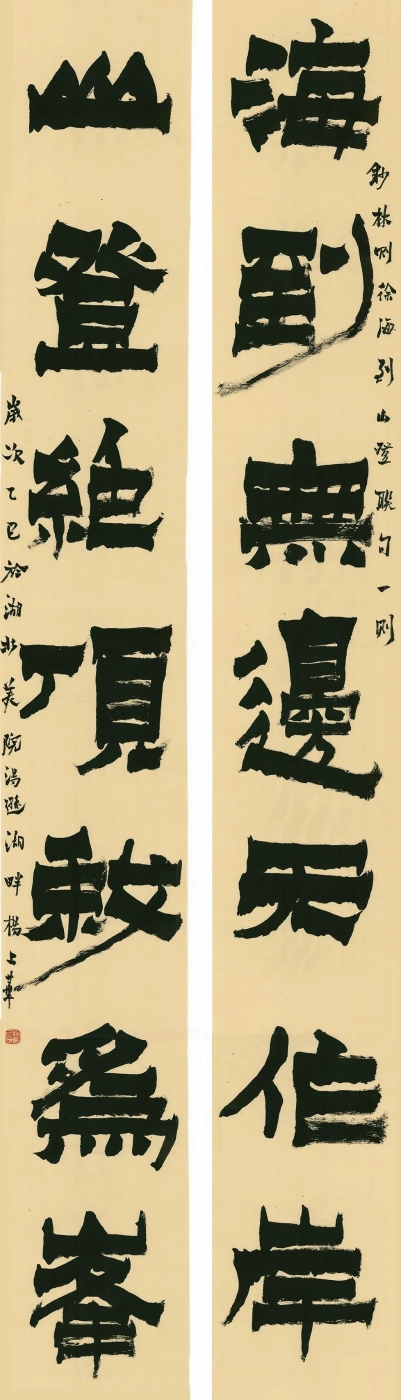 海到無邊天作岸
鈔林則徐海到山登聯句一則
山登絶頂我爲峯
歲次乙巳於湖北美院湯遜湖畔楊上